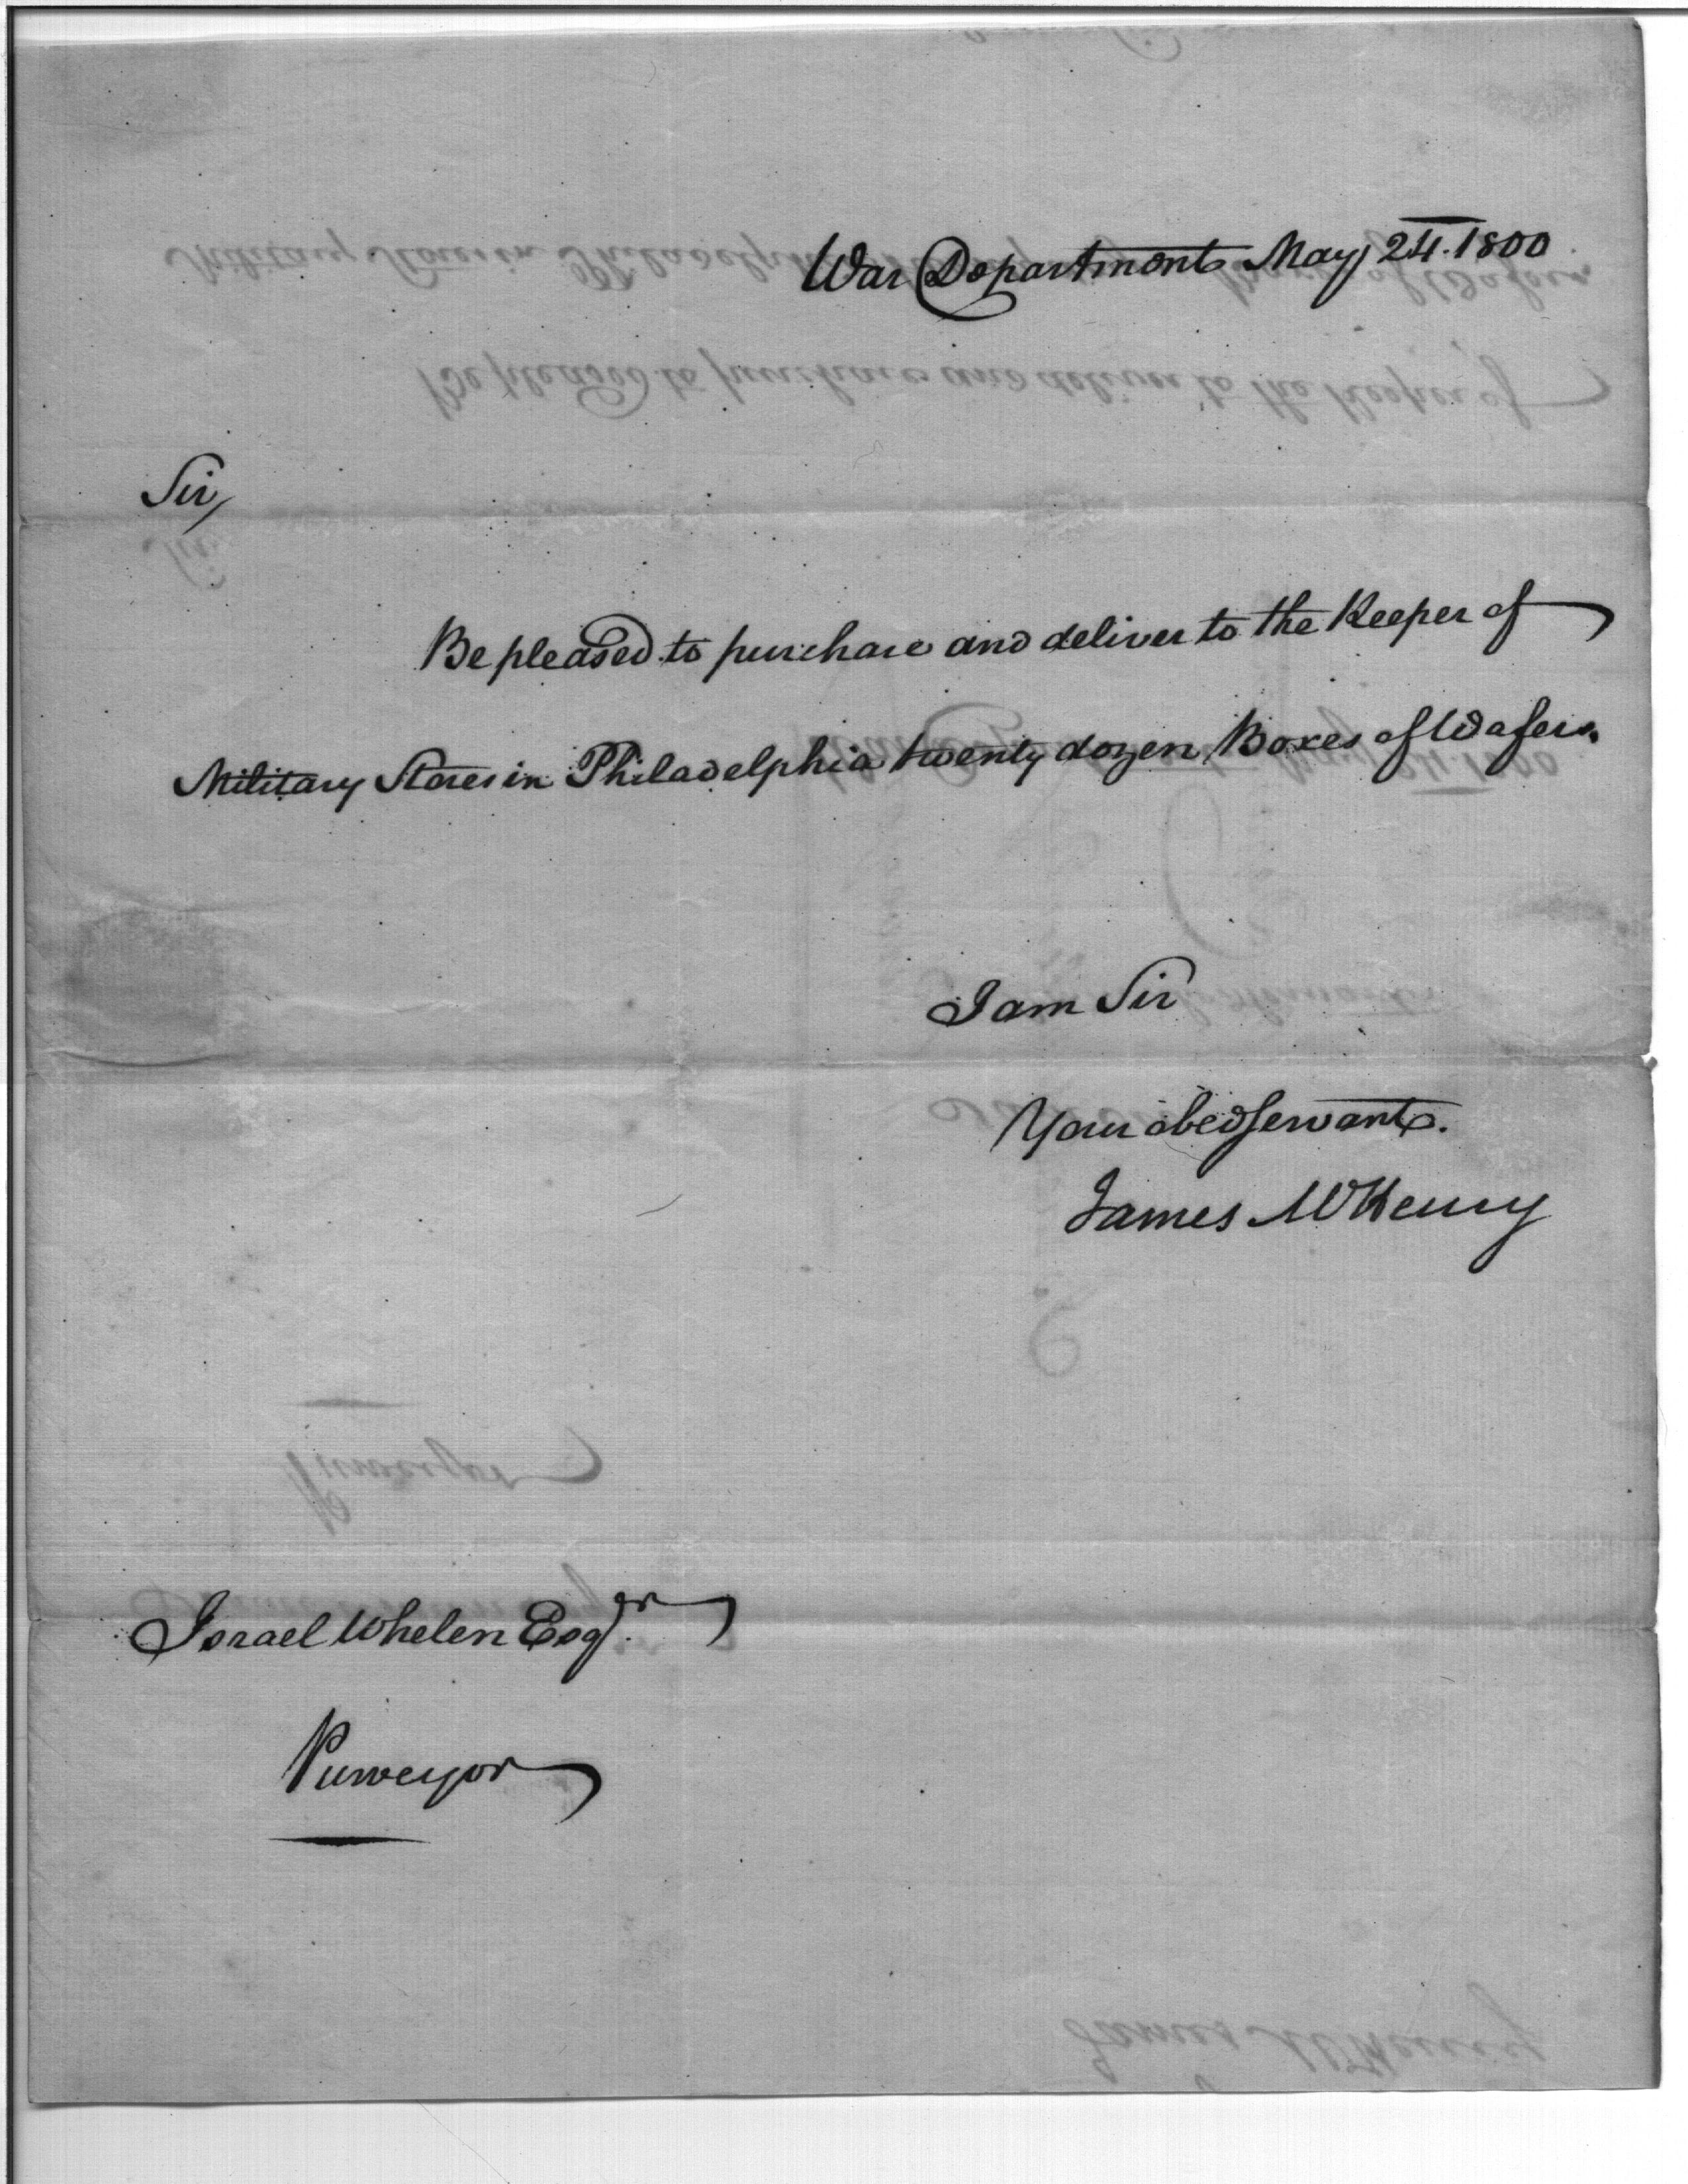 War Department May 24. 1800
Sir,
Be pleased to purchase and deliver to the Keeper of
Military Stores in Philadelphia twenty dozen Boxes of Wafers.
I am Sir
Your obed servant.
James McHenry
Israel Whelen Esqr.
Purveyor